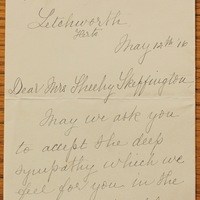 Letchworth
Herts
May 12th 16
Dear Mrs Sheehy Skeffington
May we ask you
to accept the deep
sympathy which we
feel for you in the